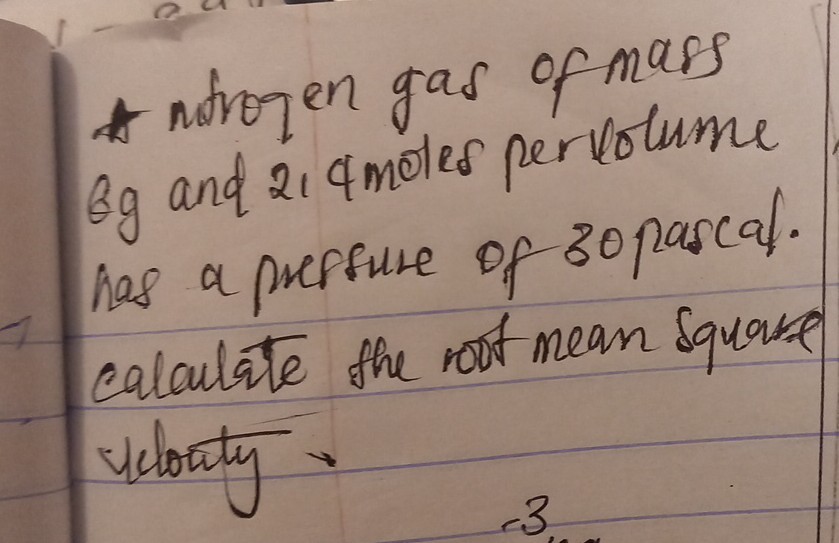 ★ nitrogen gas of mass
6g and 2.4 moles per volume
has a pressure of 30 pascal.
calculate the root mean square
velocity.
-3